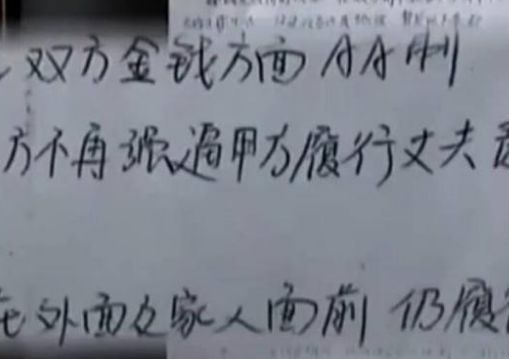 双方金钱方面AA制
方不再强逼甲方履行丈夫
在外面及家人面前 仍履行